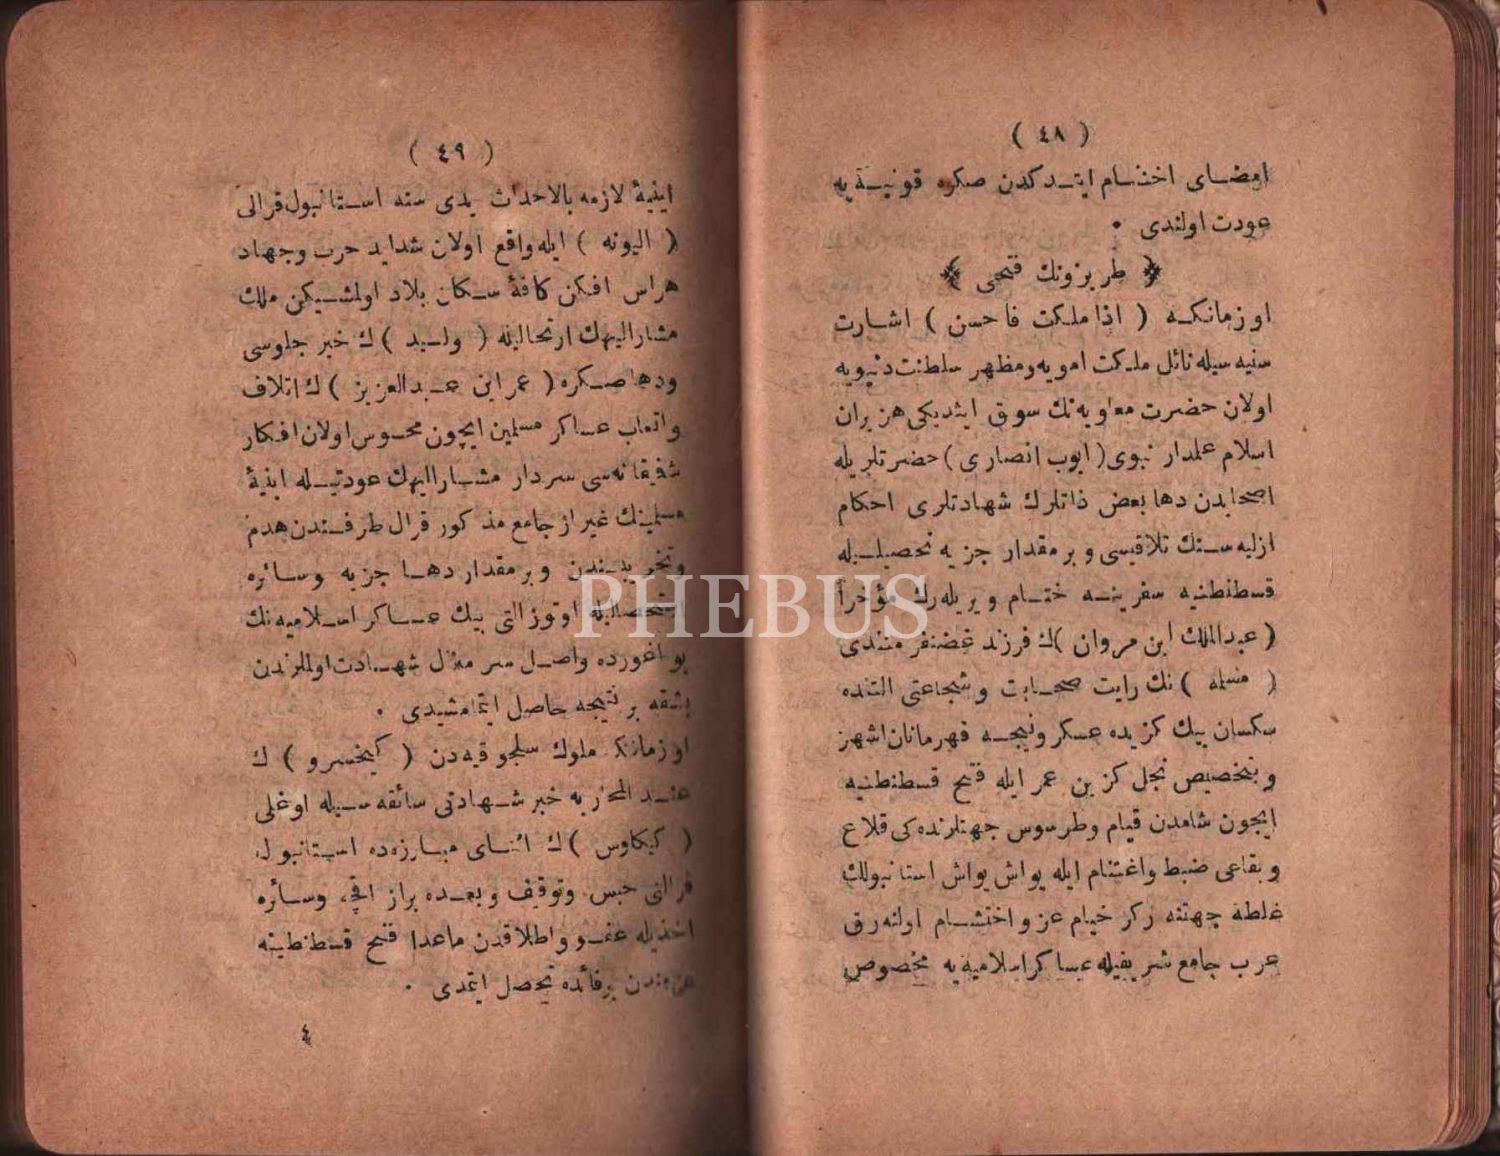 ( ٤٨ )
امضای اختتام ایتدکدن صکره قونیه‌یه
عودت اولندی ٠
﴿ طربزونك فتحی ﴾
اوزمانکه ( اذا ملکت فاحسن ) اشارت
سنیه سیله نائل ملکت امویه ومظهر سلطنت دنیویه
اولان حضرت معاویه‌نك سوق ایتدیکی هزبران
اسلام علمدار نبوی (ایوب انصاری) حضرتلریله
اصحابدن دها بعض ذاتلرك شهادتلری احکام
ازلیه سنك تلاقیسی وبرمقدار جزیه تحصیلیله
قسطنطنیه سفرینه ختام ویریله‌رك مؤخراً
( عبدالملك ابن مروان )ك فرزند غضنفر مندی
( مسلمه ) نك رایت صحابت وشجاعتی التنده
سکسان بیك کزیده عسکر ونیجه قهرمانان اشهر
وبتخصیص نجل کزین عمر ایله فتح قسطنطنیه
ایچون شامدن قیام وطرسوس جهتلرنده‌کی قلاع
وبقاعی ضبط واغتنام ایله یواش یواش استانبولك
غلطه جهتنه رکز خیام عز واختشام اولنه‌رق
عرب جامع شریفیله عساکر اسلامیه‌یه مخصوص
( ٤٩ )
ابنیهٔ لازمه بالاحداث یدی سنه استانبول قرالی
( الیونه ) ایله واقع اولان شداید حرب وجهاد
هراس افکن کافهٔ سکان بلاد اولمشیکن ملك
مشارالیهك ارتحالیله ( ولید )ك خبر جلوسی
ودها صکره ( عمر ابن عبدالعزیز )ك اتلاف
واتعاب عساکر مسلمین ایچون محسوس اولان افکار
شفیقانه‌سی سردار مشارالیهك عودتیله ابنیهٔ
مسلمینك غیر از جامع مذکور قرال طرفندن هدم
وتخریبندن وبرمقدار دها جزیه وسائره
استحصالیله اوتوز التی بیك عساکر اسلامیه‌نك
بو اغورده واصل سر منزل شهادت اولملرندن
بشقه بر نتیجه حاصل ایتمامشیدی ٠
اوزمانکه ملوك سلجوقیه‌دن ( کیخسرو )ك
عند المحاربه خبر شهادتی سائقه سیله اوغلی
( کیکاوس )ك اثنای مبارزه‌ده استانبول
قرالنی حبس وتوقیف وبعده براز اقچه وسائره
اخذیله عفو واطلاقدن ماعدا فتح قسطنطنیه
بر فائده تحصل ایتمدی ٠
٤
PHEBUS